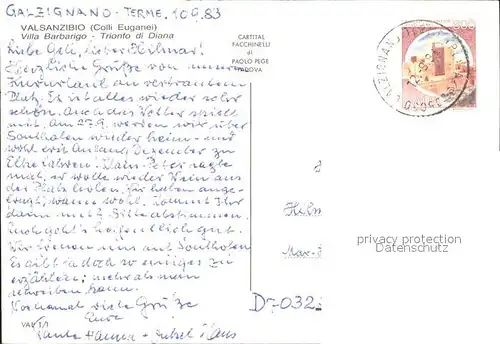 GALZIGNANO-TERME, 10.9.83
VALSANZIBIO (Colli Euganei)
Villa Barbarigo - Trionfo di Diana
CARTITAL
FACCHINELLI
di
PAOLO PEGE
PADOVA
Liebe Geli, lieber Hilmar!
Herzliche Grüße von unserem
Kurzurlaub an vertrautem
Platz. Es ist alles wieder sehr
schön. Auch das Wetter spielt
mit. Am 27.9. werden wir über
Sonthofen wieder heim - und
wohl erst Anfang Dezember zu
Elke fahren. Klaus-Peter sagte
mal, er wolle wieder Wein aus
der Pfalz holen. Wir haben ange-
fragt, wann wohl. Könnt Ihr
dann mit? Bitte abstimmen.
Euch geht's hoffentlich gut.
Wir freuen uns auf Sonthofen
Es gibt ja doch so einiges zu
erzählen; mehr als man
schreiben kann.
Nochmal viele Grüße
Eure
Tante Hanna + Onkel Hans
VAL 1/1
Helm
Max-
D-032
privacy protection
Datenschutz